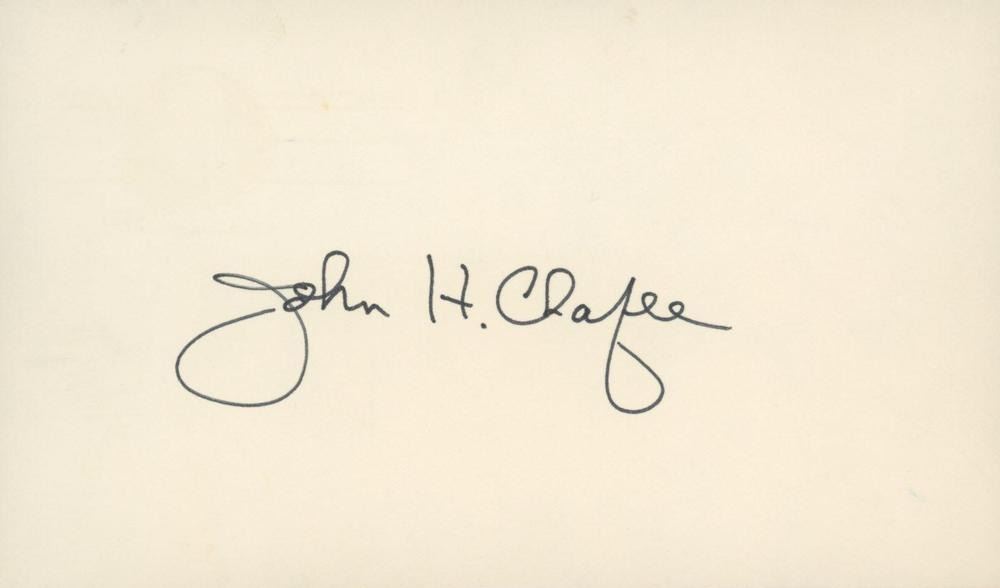 John H. Chafee